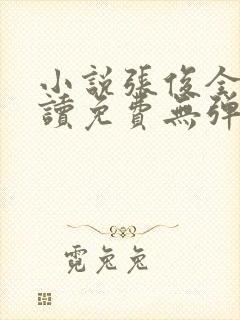 小說張俊全
讀免費無彈
霓兔兔